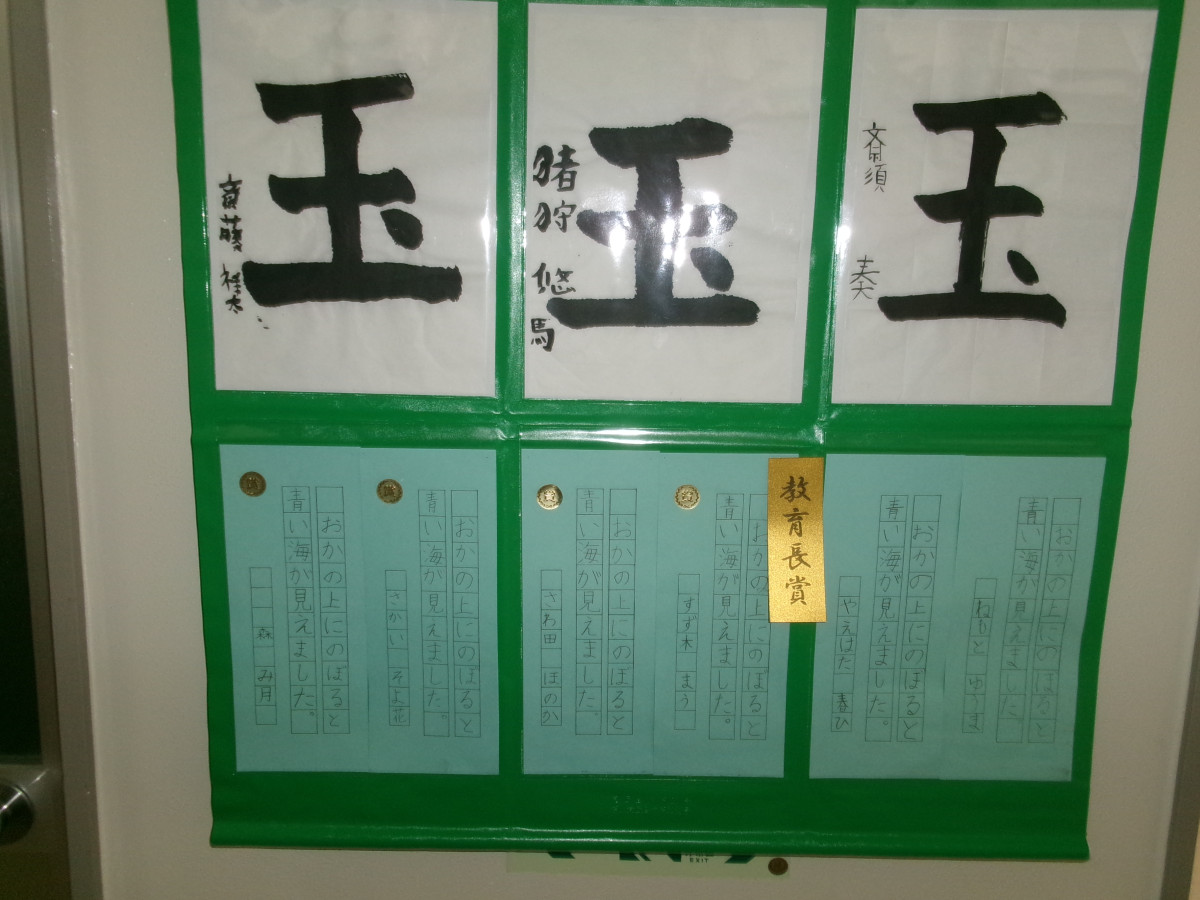 玉
齋藤 祥太
玉
猪狩 悠馬
玉
斎須 奏
教育長賞
おかの上にのぼると
青い海が見えました。
ねもと ゆうま
おかの上にのぼると
青い海が見えました。
やえはた 春ひ
おかの上にのぼると
青い海が見えました。
すず木 まう
おかの上にのぼると
青い海が見えました。
さわ田 ほのか
おかの上にのぼると
青い海が見えました。
さかい そよ花
おかの上にのぼると
青い海が見えました。
森 み月
EXIT